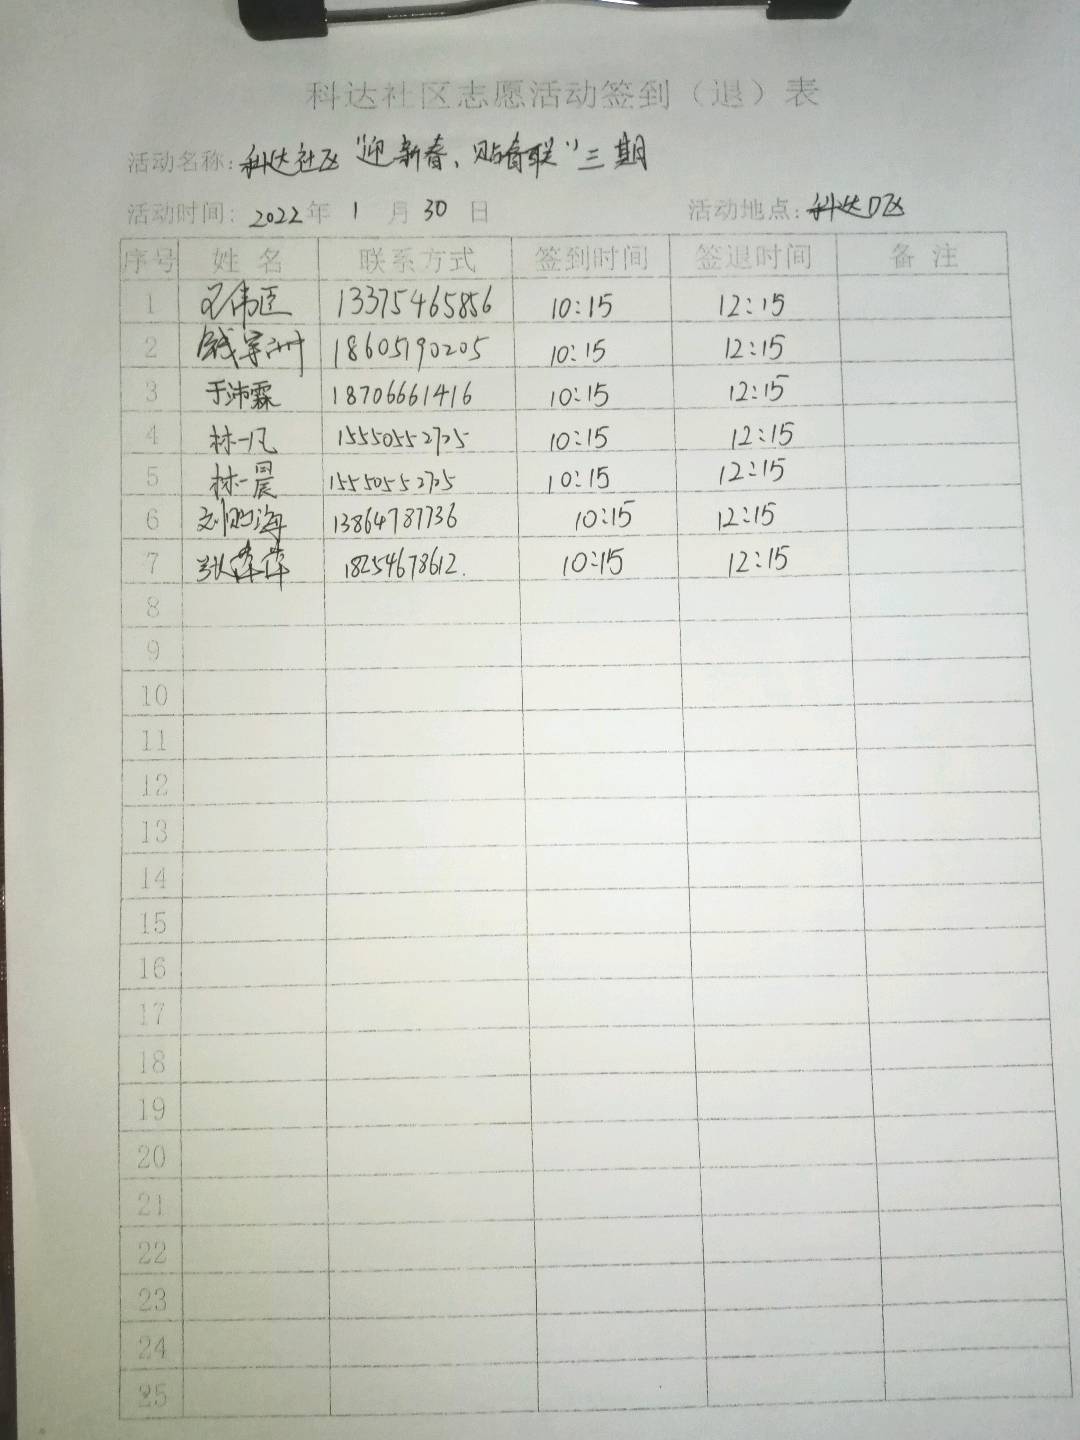 科达社区志愿活动签到（退）表
活动名称：科达社区“迎新春、贴春联”三期
活动时间：2022年 1 月 30 日 活动地点：科达D区
序号 姓 名 联系方式 签到时间 签退时间 备 注
1 伟臣 13375465856 10:15 12:15
2 钱宇洲 18605190205 10:15 12:15
3 于沛霖 18706661416 10:15 12:15
4 林一凡 15550552725 10:15 12:15
5 林一晨 15550552725 10:15 12:15
6 刘海 13864787736 10:15 12:15
7 张萍萍 18254678612. 10:15 12:15
8
9
10
11
12
13
14
15
16
17
18
19
20
21
22
23
24
25